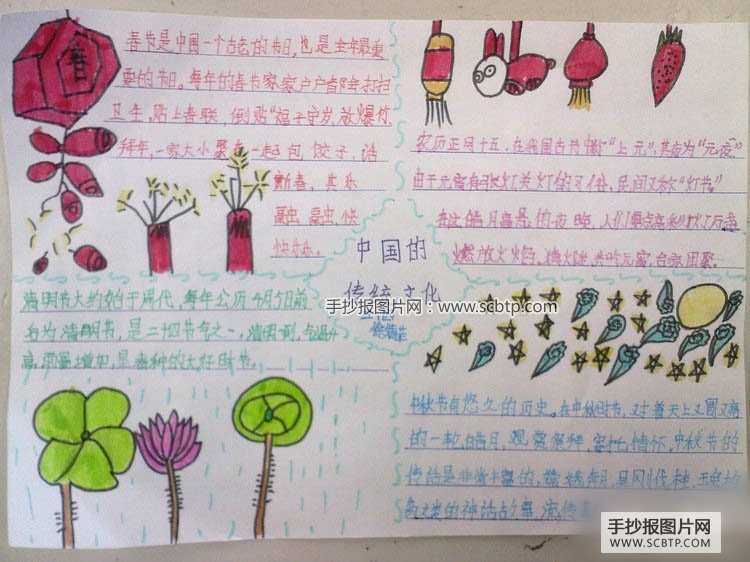 春
春节是中国一个古老的节日,也是全年最重
要的节日。每年的春节家家户户都会打扫
卫生,贴上春联,倒贴"福子守岁,放爆竹
拜年,一家大小聚在一起包饺子,话
新春,其乐
融融,快
快乐乐。
农历正月十五,在我国古书中称"上元",其夜为"元夜"
由于元宵有张灯
民间又称"灯节"
在这皓月高悬的夜晚,人们要点
燃放
元宵,合家团聚.
中国的
传统文化
手抄报图片网:www.scbtp.com
清明节大约始于周代,每年公历4月5日前
后为清明节,是二十四节气之一,清明到,气温升
高雨量增加,是春种的大好时节.
中秋节有悠久的历史。在中秋时节,对着天上又圆又亮
的一轮皓月,观赏祭拜,寄托情怀,中秋节的
传说是非常丰富的,嫦娥奔月,吴刚伐桂,玉兔捣
药之类的神话故事,流传
手抄报图片网
WWW.SCBTP.COM